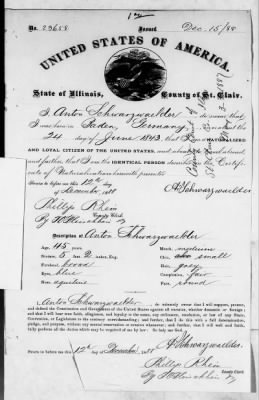 No. 23658 Issued Dec. 15/88
UNITED STATES OF AMERICA.
State of Illinois, County of St. Clair.
I, Anton Schwarzwaelder do swear that
I was born in Baden, Germany on or about the
24 day of June 1843, that I am a NATURALIZED
AND LOYAL CITIZEN OF THE UNITED STATES, and about to travel abroad,
and further, that I am the IDENTICAL PERSON described in the Certifi-
cate of Naturalization herewith presented.
Sworn to before me this 12th day
of December 1888
A Schwarzwaelder
Phillip Rhein
County Clerk
Description of Anton Schwarzwaelder
Age, 45 years
Mouth, medium
Stature, 5 feet 2 inches, Eng.
Chin, small
Forehead, broad
Hair, grey
Eyes, blue
Complexion, fair
Nose, aquiline
Face, round
I, Anton Schwarzwaelder, do solemnly swear that I will support, protect,
and defend the Constitution and Government of the United States against all enemies, whether domestic or foreign;
and that I will bear true faith, allegiance, and loyalty to the same, any ordinance, resolution, or law of any State,
Convention, or Legislature to the contrary notwithstanding; and further, that I do this with a full determination,
pledge, and purpose, without any mental reservation or evasion whatsoever; and further, that I will well and faith-
fully perform all the duties which may be required of me by law. So help me God.
A Schwarzwaelder
Sworn to before me this 12th December 1888
Phillip Rhein
County Clerk